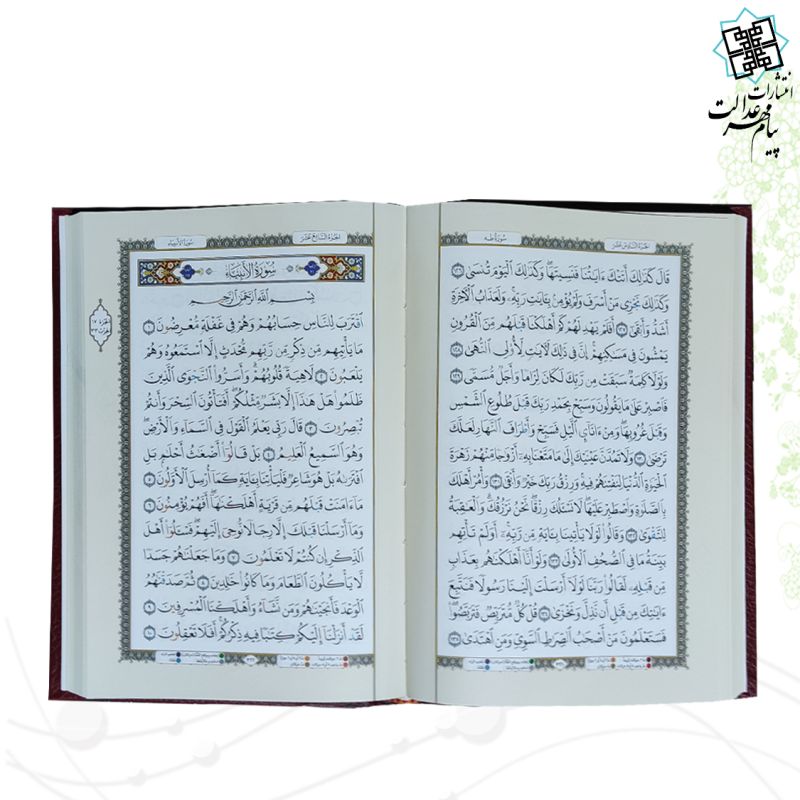 انتشارات
پیام مهر عدالت
الجزء السادس عشر
سورة طه
قَالَ كَذَٰلِكَ أَتَتْكَ ءَايَٰتُنَا فَنَسِيتَهَا ۖ وَكَذَٰلِكَ ٱلْيَوْمَ تُنسَىٰ ١٢٦
وَكَذَٰلِكَ نَجْزِى مَنْ أَسْرَفَ وَلَمْ يُؤْمِنۢ بِـَٔايَٰتِ رَبِّهِۦ ۚ وَلَعَذَابُ ٱلْءَاخِرَةِ
أَشَدُّ وَأَبْقَىٰٓ ١٢٧ أَفَلَمْ يَهْدِ لَهُمْ كَمْ أَهْلَكْنَا قَبْلَهُم مِّنَ ٱلْقُرُونِ
يَمْشُونَ فِى مَسَٰكِنِهِمْ ۗ إِنَّ فِى ذَٰلِكَ لَءَايَٰتٍ لِّأُو۟لِى ٱلنُّهَىٰ ١٢٨
وَلَوْلَا كَلِمَةٌ سَبَقَتْ مِن رَّبِّكَ لَكَانَ لِزَامًا وَأَجَلٌ مُّسَمًّى ١٢٩
فَٱصْبِرْ عَلَىٰ مَا يَقُولُونَ وَسَبِّحْ بِحَمْدِ رَبِّكَ قَبْلَ طُلُوعِ ٱلشَّمْسِ
وَقَبْلَ غُرُوبِهَا ۖ وَمِنْ ءَانَآئِ ٱلَّيْلِ فَسَبِّحْ وَأَطْرَافَ ٱلنَّهَارِ لَعَلَّكَ
تَرْضَىٰ ١٣٠ وَلَا تَمُدَّنَّ عَيْنَيْكَ إِلَىٰ مَا مَتَّعْنَا بِهِۦٓ أَزْوَٰجًا مِّنْهُمْ زَهْرَةَ
ٱلْحَيَوٰةِ ٱلدُّنْيَا لِنَفْتِنَهُمْ فِيهِ ۚ وَرِزْقُ رَبِّكَ خَيْرٌ وَأَبْقَىٰ ١٣١ وَأْمُرْ أَهْلَكَ
بِٱلصَّلَوٰةِ وَٱصْطَبِرْ عَلَيْهَا ۖ لَا نَسْـَٔلُكَ رِزْقًا ۖ نَّحْنُ نَرْزُقُكَ ۗ وَٱلْعَٰقِبَةُ
لِلتَّقْوَىٰ ١٣٢ وَقَالُوا۟ لَوْلَا يَأْتِينَا بِـَٔايَةٍ مِّن رَّبِّهِۦٓ ۚ أَوَلَمْ تَأْتِهِم
بَيِّنَةُ مَا فِى ٱلصُّحُفِ ٱلْأُولَىٰ ١٣٣ وَلَوْ أَنَّآ أَهْلَكْنَٰهُم بِعَذَابٍ
مِّن قَبْلِهِۦ لَقَالُوا۟ رَبَّنَا لَوْلَآ أَرْسَلْتَ إِلَيْنَا رَسُولًا فَنَتَّبِعَ
ءَايَٰتِكَ مِن قَبْلِ أَن نَّذِلَّ وَنَخْزَىٰ ١٣٤ قُلْ كُلٌّ مُّتَرَبِّصٌ فَتَرَبَّصُوا۟ ۖ
فَسَتَعْلَمُونَ مَنْ أَصْحَٰبُ ٱلصِّرَٰطِ ٱلسَّوِىِّ وَمَنِ ٱهْتَدَىٰ ١٣٥
٣٢١
الجزء السابع عشر
سورة الأنبياء
سُورَةُ الأَنبِيَاء
بِسْمِ ٱللَّهِ ٱلرَّحْمَٰنِ ٱلرَّحِيمِ
ٱقْتَرَبَ لِلنَّاسِ حِسَابُهُمْ وَهُمْ فِى غَفْلَةٍ مُّعْرِضُونَ ١
مَا يَأْتِيهِم مِّن ذِكْرٍ مِّن رَّبِّهِم مُّحْدَثٍ إِلَّا ٱسْتَمَعُوهُ وَهُمْ
يَلْعَبُونَ ٢ لَاهِيَةً قُلُوبُهُمْ ۗ وَأَسَرُّوا۟ ٱلنَّجْوَى ٱلَّذِينَ
ظَلَمُوا۟ هَلْ هَٰذَآ إِلَّا بَشَرٌ مِّثْلُكُمْ ۖ أَفَتَأْتُونَ ٱلسِّحْرَ وَأَنتُمْ
تُبْصِرُونَ ٣ قَالَ رَبِّى يَعْلَمُ ٱلْقَوْلَ فِى ٱلسَّمَآءِ وَٱلْأَرْضِ ۖ
وَهُوَ ٱلسَّمِيعُ ٱلْعَلِيمُ ٤ بَلْ قَالُوٓا۟ أَضْغَٰثُ أَحْلَٰمٍۭ بَلِ
ٱفْتَرَىٰهُ بَلْ هُوَ شَاعِرٌ فَلْيَأْتِنَا بِـَٔايَةٍ كَمَآ أُرْسِلَ ٱلْأَوَّلُونَ ٥
مَآ ءَامَنَتْ قَبْلَهُم مِّن قَرْيَةٍ أَهْلَكْنَٰهَآ ۖ أَفَهُمْ يُؤْمِنُونَ ٦
وَمَآ أَرْسَلْنَا قَبْلَكَ إِلَّا رِجَالًا نُّوحِىٓ إِلَيْهِمْ ۖ فَسْـَٔلُوٓا۟ أَهْلَ
ٱلذِّكْرِ إِن كُنتُمْ لَا تَعْلَمُونَ ٧ وَمَا جَعَلْنَٰهُمْ جَسَدًا
لَّا يَأْكُلُونَ ٱلطَّعَامَ وَمَا كَانُوا۟ خَٰلِدِينَ ٨ ثُمَّ صَدَقْنَٰهُمُ
ٱلْوَعْدَ فَأَنجَيْنَٰهُمْ وَمَن نَّشَآءُ وَأَهْلَكْنَا ٱلْمُسْرِفِينَ ٩
لَقَدْ أَنزَلْنَآ إِلَيْكُمْ كِتَٰبًا فِيهِ ذِكْرُكُمْ ۖ أَفَلَا تَعْقِلُونَ ١٠
٣٢٢